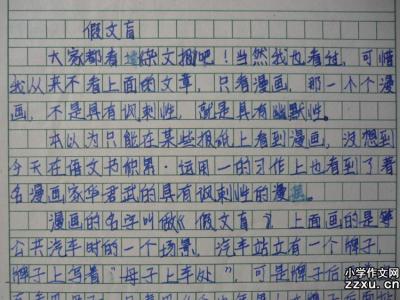 假文盲
大家都看过杂文报吧！当然我也看过，可惜
我从来不看上面的文章，只看漫画，那一个个漫
画，不是具有讽刺性，就是具有幽默性。
本以为只能在某些报纸上看到漫画，没想到
今天在语文书积累·运用一的习作上也看到了著
名漫画家华君武的具有讽刺性的漫画。
漫画的名字叫做《假文盲》，上面画的是等
公共汽车时的一个场景，汽车站立有一个牌子，
牌子上写着“母子上车处”，可是牌子后
小学作文网
zzxu.cn